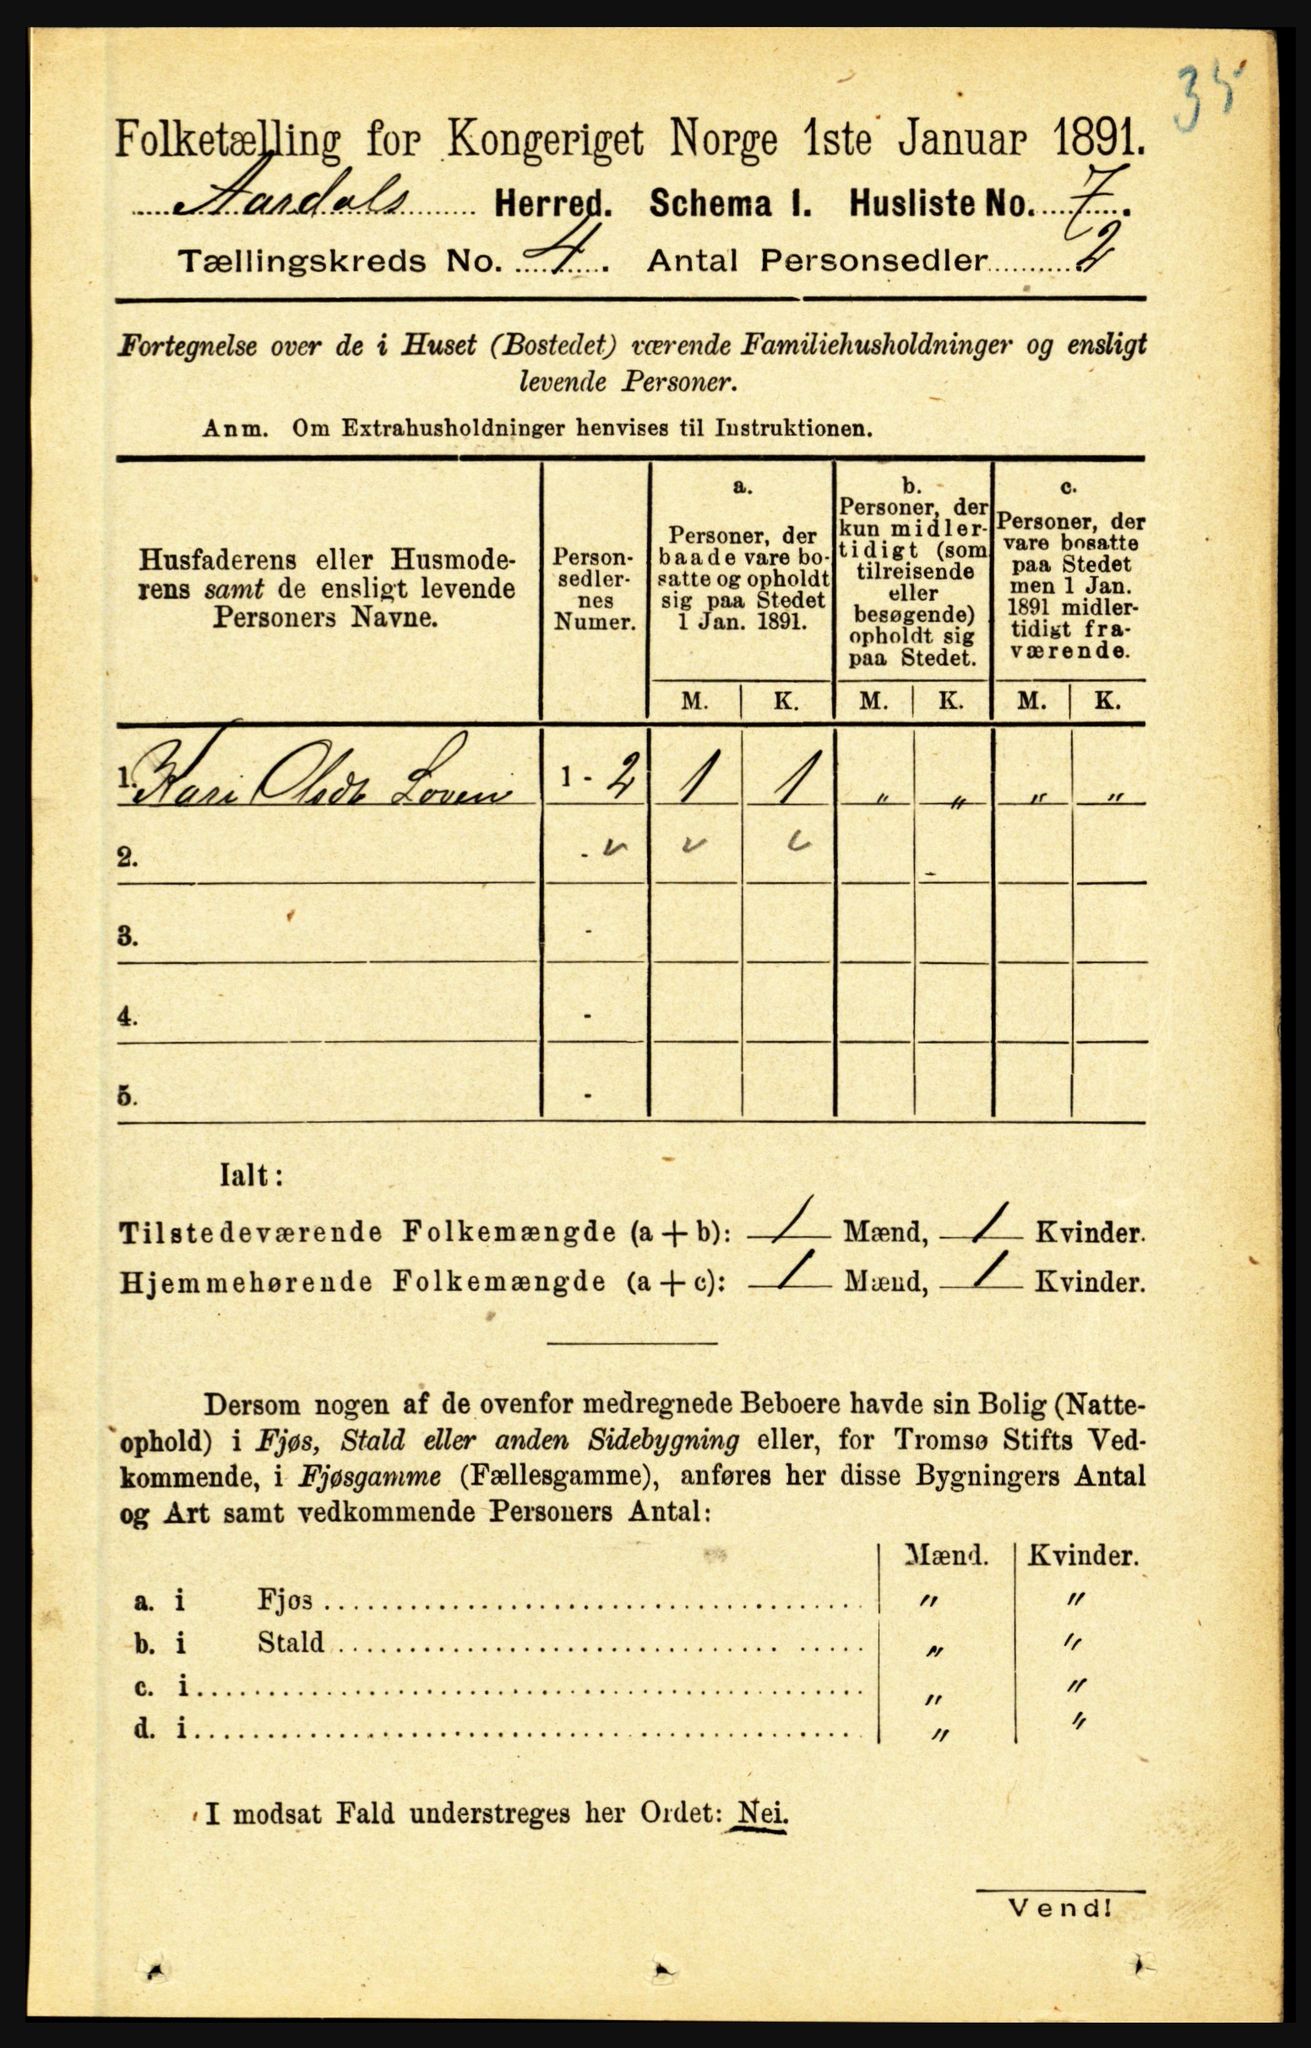 35
Folketælling for Kongeriget Norge 1ste Januar 1891.
Aardals Herred. Schema I. Husliste No. 7.
Tællingskreds No. 4. Antal Personsedler 2
Fortegnelse over de i Huset (Bostedet) værende Familiehusholdninger og ensligt
levende Personer.
Anm. Om Extrahusholdninger henvises til Instruktionen.
Husfaderens eller Husmode-
rens samt de ensligt levende
Personers Navne.
Person-
sedler-
nes
Numer.
a.
Personer, der
baade vare bo-
satte og opholdt
sig paa Stedet
1 Jan. 1891.
b.
Personer, der
kun midler-
tidigt (som
tilreisende
eller
besøgende)
opholdt sig
paa Stedet.
c.
Personer, der
vare bosatte
paa Stedet
men 1 Jan.
1891 midler-
tidigt fra-
værende.
M. K. M. K. M. K.
1. Kari Olsdt Loven 1 - 2 1 1 " " " "
2. -
3. -
4. -
5. -
Ialt:
Tilstedeværende Folkemængde (a + b): 1 Mænd, 1 Kvinder.
Hjemmehørende Folkemængde (a + c): 1 Mænd, 1 Kvinder.
Dersom nogen af de ovenfor medregnede Beboere havde sin Bolig (Natte-
ophold) i Fjøs, Stald eller anden Sidebygning eller, for Tromsø Stifts Ved-
kommende, i Fjøsgamme (Fællesgamme), anføres her disse Bygningers Antal
og Art samt vedkommende Personers Antal:
Mænd. Kvinder.
a. i Fjøs " "
b. i Stald " "
c. i " "
d. i " "
I modsat Fald understreges her Ordet: Nei.
Vend!